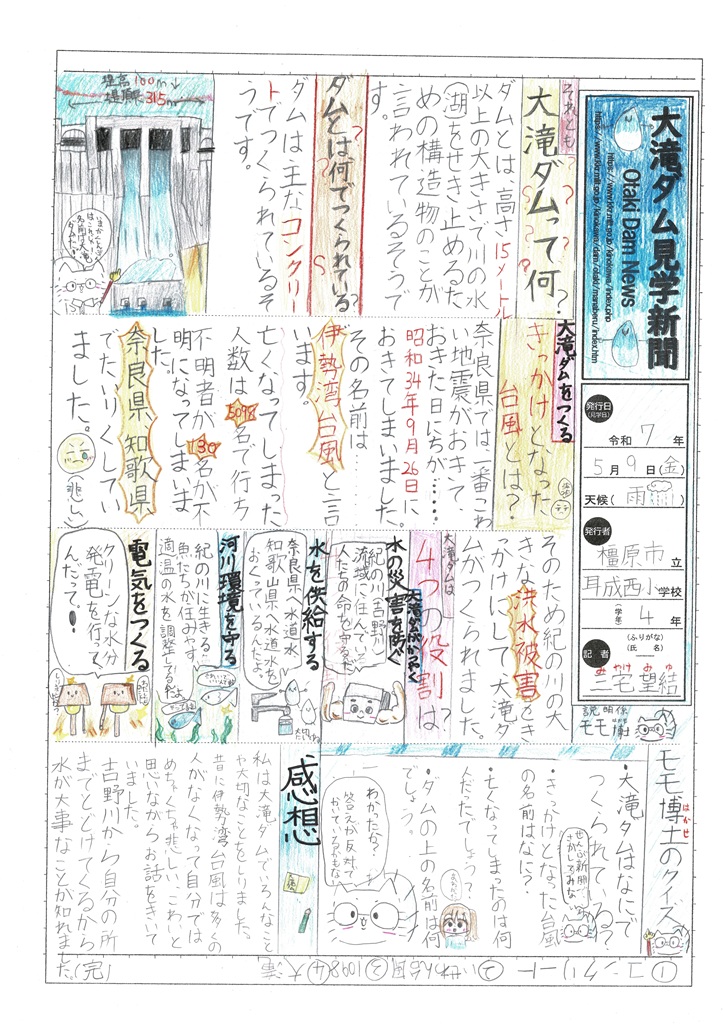 大滝ダム見学新聞
Otaki Dam News
https://www.kkr.mlit.go.jp/kinokawa/index.php
https://www.kkr.mlit.go.jp/kinokawa/dam/otaki/manaberu/index.htm
発行日
(見学日)
令和 7 年
5 月 9 日(金)
天候(雨)
発行者
橿原市 立
耳成西小 学校
(学年) 4 年
記者
(ふりがな)
(氏 名)
みやけ みゆ
三宅 望結
説明係
モモ博士
それとも?
大滝ダムって何?
ダムとは、高さ15メートル
以上の大きさで川の水
(湖)をせき止めるた
めの構造物のことが
言われているそうで
す。
ダムとは何でつくられている?
ダムは主なコンクリー
トでつくられているそ
うです。
堤高100m
堤頂長315m
大滝ダムをつくる
きっかけとなった
台風とは?
奈良県では、一番こわ
い地震がおきて、
おきた日にちが……
昭和34年9月26日に
おきてしまいました。
その名前は……
伊勢湾台風と言
います。
亡くなってしまった
人数は5098名で行ち
不明者が130名が不
明になってしまいま
した。
奈良県 知歌県
でたいりくしてい
ました。
(悲しい)
そのため紀の川の大
きな洪水被害をき
っかけにして大滝ダ
ムがつくられました。
大滝ダムは
4つの役割は?
大滝ダムがかつやく
水の災害を防ぐ
紀の川(吉野川)
流域に住んでいる
人たちの命を守るため
水を供給する
奈良県へ水道水
知歌山県へ水道水を
おくっているんだよ。
河川環境を守る
紀の川に生きる
魚たちが住みやす
適温の水を調整してるんだよ
電気をつくる
クリーンな水分
発電を行って
んだって!
モモ博士のクイズ
はかせ
・大滝ダムはなにで
つくられている?
ぜんぶ新聞
さがしてみな
・きっかけとなった台風
の名前はなに?
・亡くなってしまったのは何
んだたでしょう?
・ダムの上の名前は何
でしょ
わかったかな?
答えが反対で
かいているかもな
感想
私は大滝ダムでいろんなこと
や大切なことをしりました。
昔に伊勢湾台風は多くの
人がなくなって自分では
めちゃくちゃ悲しい、こわいと
思いながらお話をきいて
いました。
吉野川から自分の所
までとどけてくるから
水が大事なことが知れまし
た。(完)
①コンクリート ②いせわん台風 ③1098 ④大滝